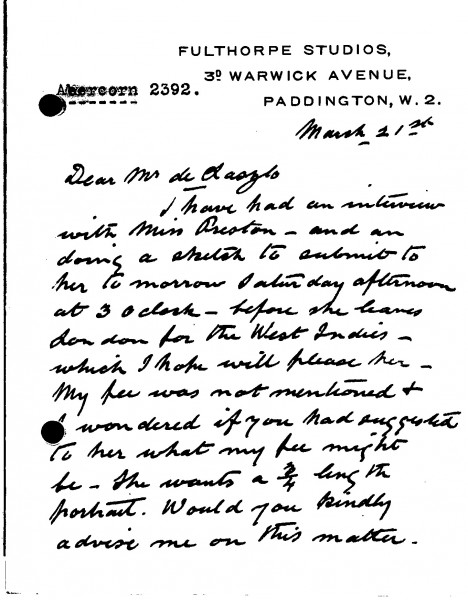 FULTHORPE STUDIOS,
3D WARWICK AVENUE,
Abercorn 2392.
PADDINGTON, W. 2.
March 21st
Dear Mr de Laszlo
I have had an interview
with Miss Preston – and am
doing a sketch to submit to
her to morrow Saturday afternoon
at 3 oclock – before she leaves
London for the West Indies –
which I hope will please her –
My fee was not mentioned &
I wondered if you had suggested
to her what my fee might
be – She wants a 3/4 length
portrait. Would you kindly
advise me on this matter.